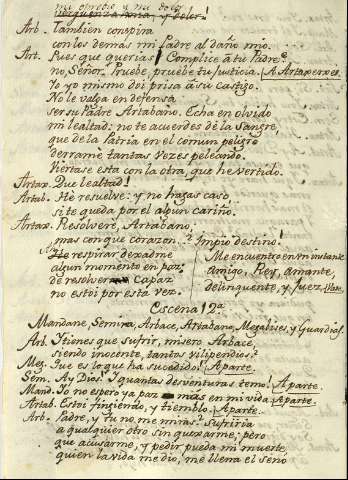 mi oprobio y mi dolor
verguenza mia, y dolor!
Arb. Tambien conspira
con los demás mi Padre al daño mio.
Art. Pues que querias? Complice á tu Padre?
no, Señor. Pruebe, pruebe tu justicia. A Artaxerxes.
Yo yo mismo doi prisa á su castigo.
No le valga en defensa
ser su Padre Artabano. Echa en olvido
mi lealtad: no te acuerdes de la Sangre,
que de la Patria en el comun peligro
derramè tantas vezes peleando.
Viertase esta con la otra, que he vertido.
Artax. Que lealtad!
Artab. He resuelve: y no hagas caso
si te queda por el algun cariño.
Artax. Resolverè, Artabano,
mas con que corazon? Impio destino!
respirar dexadme
algun momento en paz:
de resolver Capaz
no estoi por esta vez.
Me encuentro en un instante
amigo, Rey, amante,
delinquente, y Juez. Vase.
Escena 12a.
Mandane, Semira, Arbace, Artabano, Megabises, y Guardias.
Arb. Y tienes que sufrir, misero Arbace,
siendo inocente, tantos vilipendios?
Meg. Que es lo que ha sucedido! Aparte.
Sem. Ay Dios! Y quantas desventuras temo! Aparte.
Mand. Yo no espero ya paz mas en mi vida. Aparte.
Artab. Estoi fingiendo, y tiemblo. Aparte.
Arb. Padre, y tu no me miras? Sufriria
a qualquier otro sin quexarme; pero
que acusarme, y pedir pueda mi muerte,
quien la vida me dio, me llena el seno